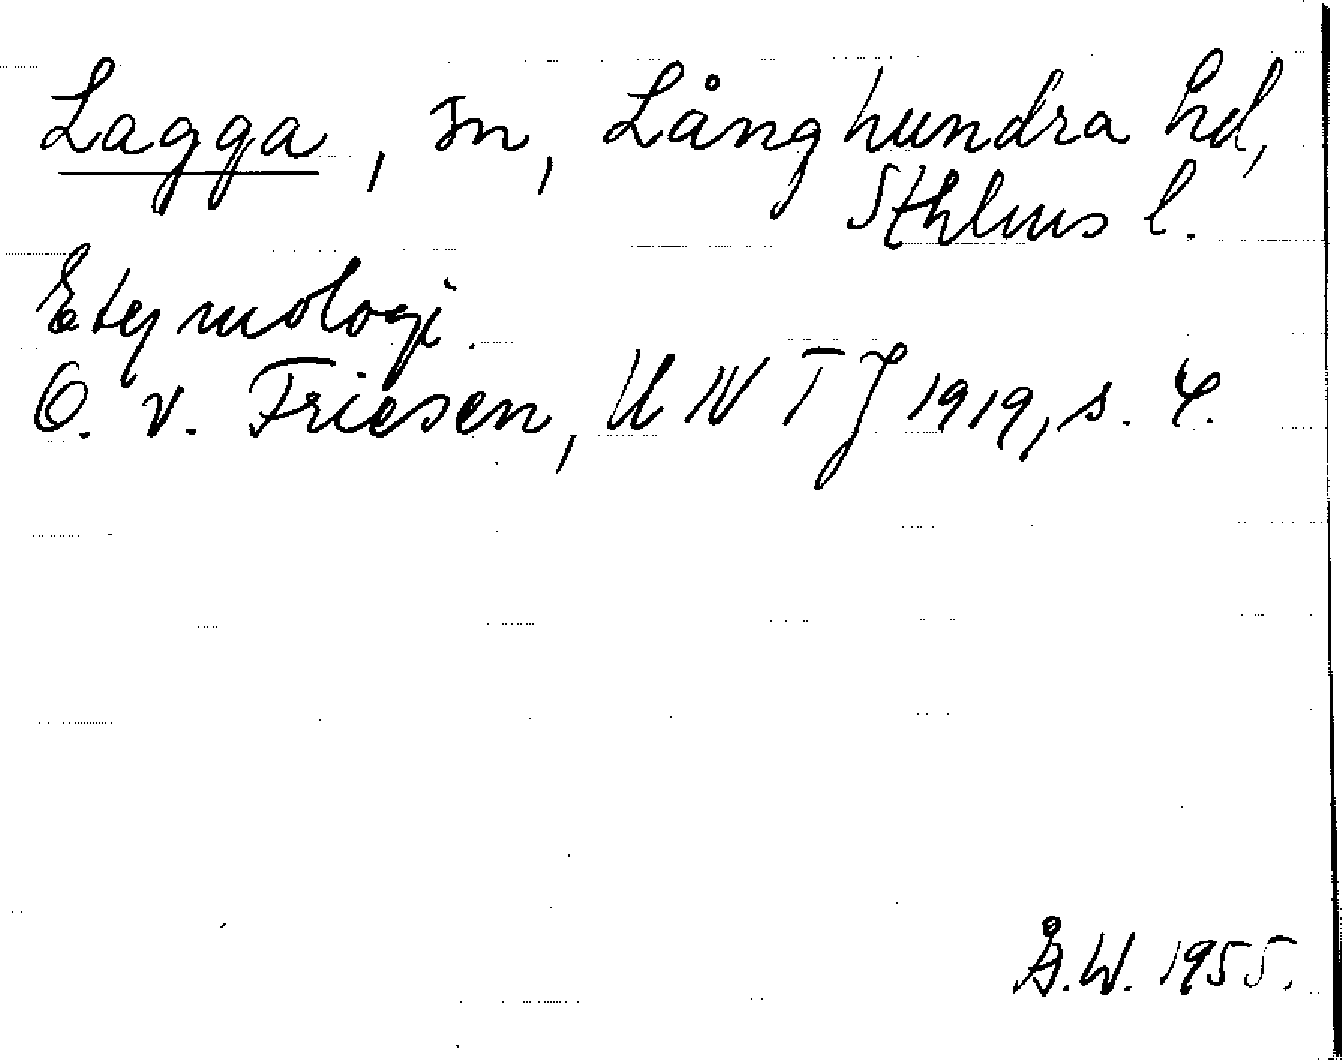 Lagga, sn, Långhundra hd,
Sthlms l.
Etymologi.
O. v. Friesen, UNTJ 1919, s. 4.
Å.W. 1955.